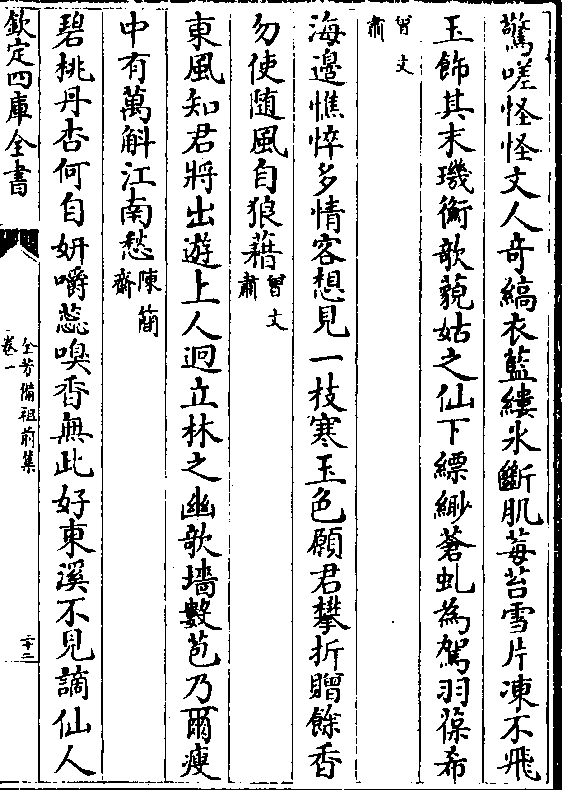 驚嗟怪怪文人竒縞衣藍縷氷斷肌莓苔雪片凍不飛
玉飾其末璣衡歌藐姑之仙下縹緲蒼虬為駕羽葆希
曾文
肅
海邊憔悴多情客想見一枝寒玉色願君攀折贈餘香
勿使随風自狼藉曾文
肅
東風知君將出遊上人迥立林之幽歌墻數苞乃爾瘦
中有萬斛江南愁陳簡
齋
碧桃丹杏何自妍嚼蕊嗅香無此好東溪不見謫仙人
欽定四庫全書
全芳備祖前集
卷一
二十二